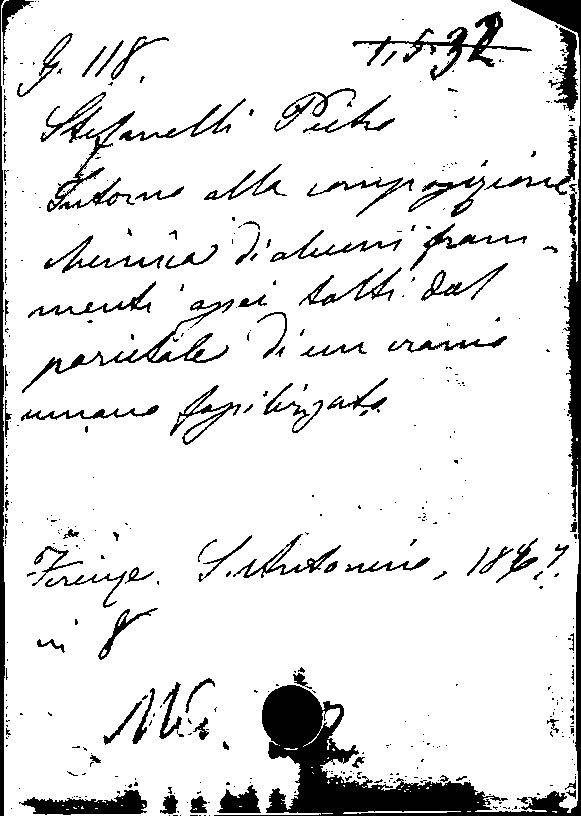 G. 118. 1,5.32
Stefanelli Pietro
Intorno alla composizione
chimica di alcuni fram-
menti ossei tolti dal
parietale di un cranio
umano fossilizzato
Firenze. S. Antonino, 1867.
in 8